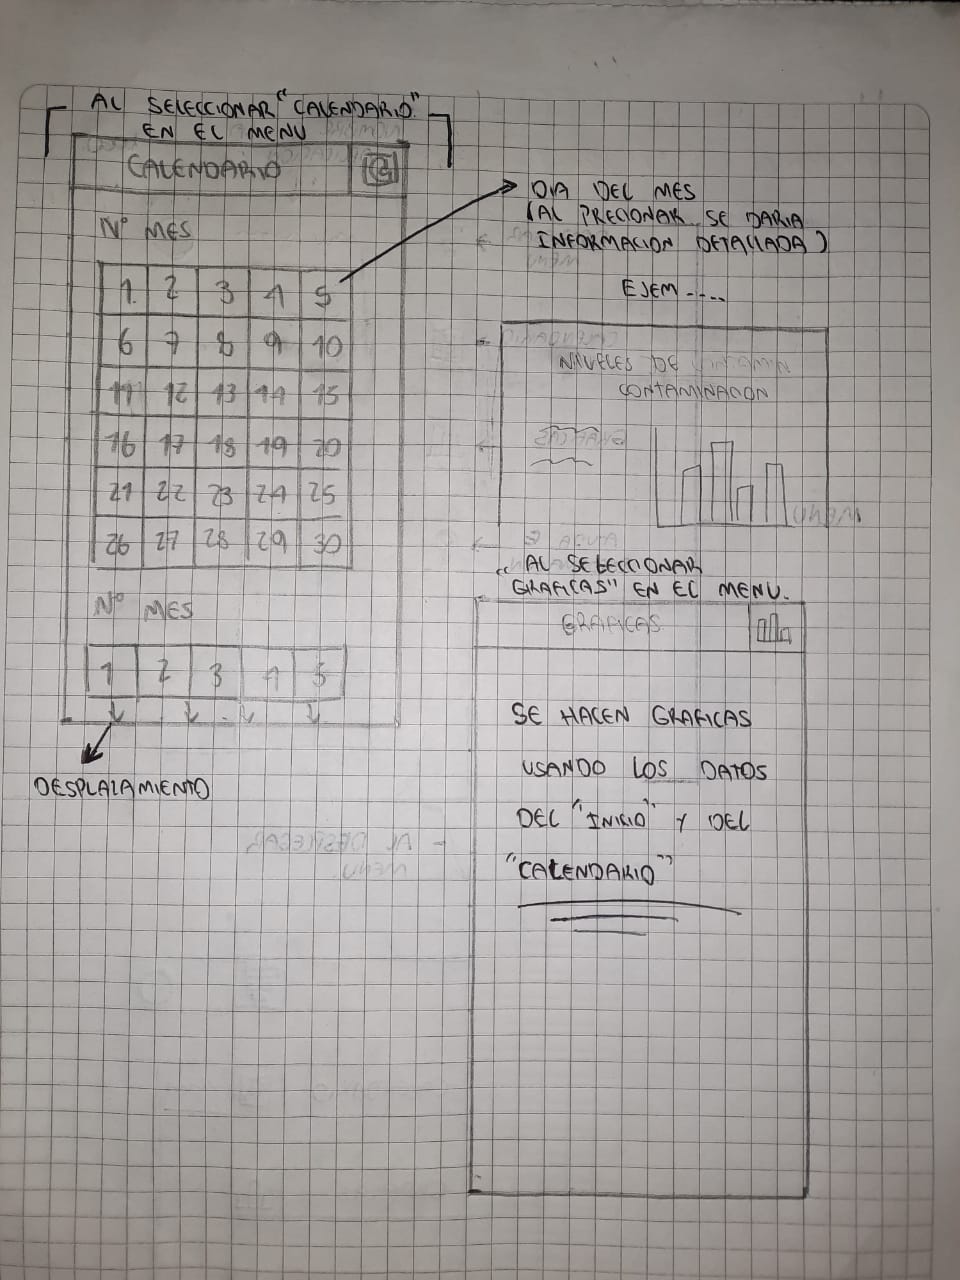 AL SELECCIONAR "CALENDARIO"
EN EL MENU
CALENDARIO
Nº MES
1 2 3 4 5
6 7 8 9 10
11 12 13 14 15
16 17 18 19 20
21 22 23 24 25
26 27 28 29 30
Nº MES
1 2 3 4 5
DESPLAZAMIENTO
DIA DEL MES
(AL PRECIONAR SE DARIA
INFORMACION DETALLADA)
EJEM....
NIVELES DE
CONTAMINACION
"AL SELECCIONAR
GRAFICAS" EN EL MENU.
GRAFICAS
SE HACEN GRAFICAS
USANDO LOS DATOS
DEL "INICIO" Y DEL
"CALENDARIO"